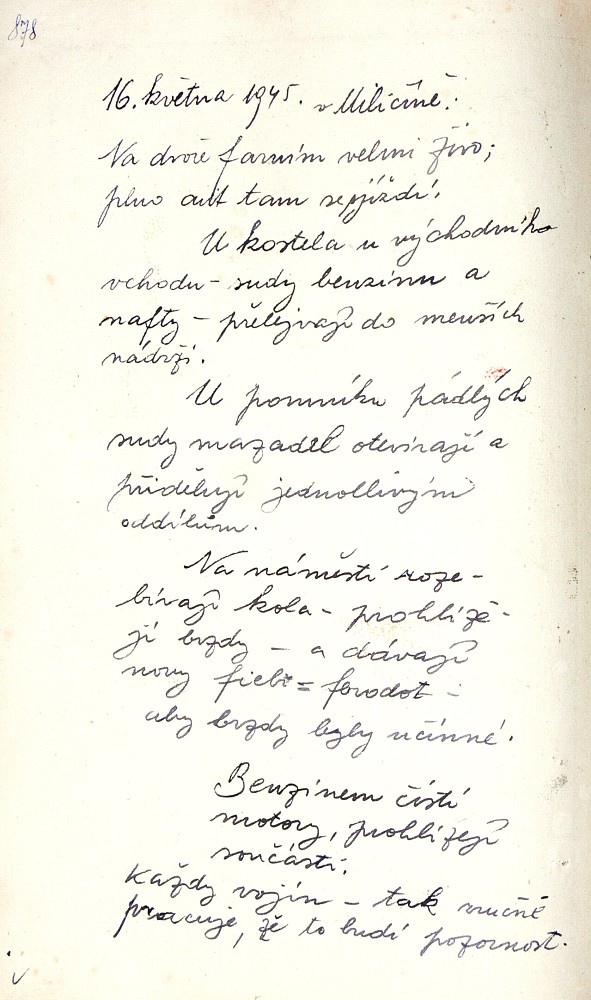 878
16. května 1945. v Miličíně.
Na dvoře farním velmi živo;
plno aut tam sepjíždí.
U kostela u východního
vchodu - sudy benzinu a
nafty - přelejvají do menších
nádrží.
U pomníku pádlých
sudy mazadel otevírají a
přidělují jednotlivým
oddílům.
Na náměstí roze-
bírají kola - prohlíže-
jí brzdy - a dávají
nový = ferodot -
aby brzdy byly učinné.
Benzinem čistí
motory, prohlížejí
součásti.
Každy vojín - tak
pracuje, že to budí pozornost.